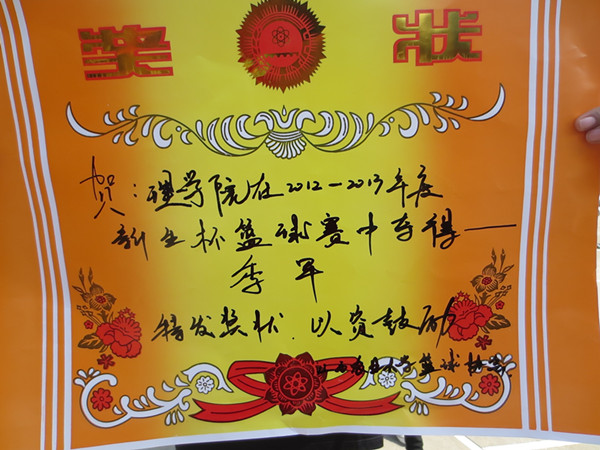 奖状
贺：理学院在2012－2013年度
新生杯篮球赛中夺得一
季军
特发奖状.以资鼓励
山西农业大学篮球协会